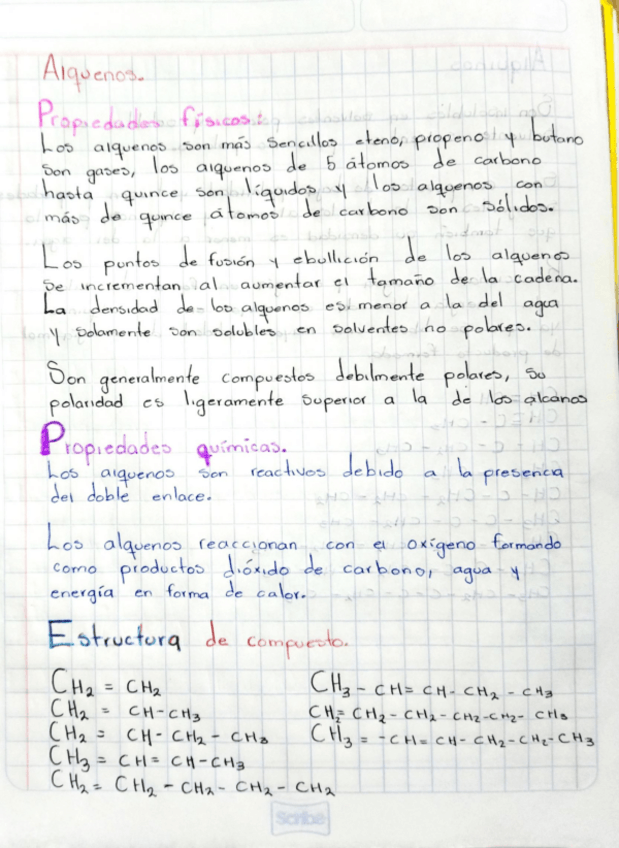 Alquenos.
Propiedades físicos:
Los alquenos son más sencillos eteno, propeno y butano
son gases, los alquenos de 5 átomos de carbono
hasta quince son líquidos y los alquenos con
más de quince átomos de carbono son sólidos.
Los puntos de fusión y ebullición de los alquenos
se incrementan al aumentar el tamaño de la cadena.
La densidad de los alquenos es menor a la del agua
y solamente son solubles en solventes no polares.
Son generalmente compuestos debilmente polares, su
polaridad es ligeramente superior a la de los alcanos
Propiedades químicas.
Los alquenos son reactivos debido a la presencia
del doble enlace.
Los alquenos reaccionan con el oxígeno formando
como productos dióxido de carbono, agua y
energía en forma de calor.
Estructura de compuesto.
CH2 = CH2
CH2 = CH-CH3
CH2 = CH-CH2-CH3
CH3 = CH= CH-CH3
CH2= CH2-CH2-CH2-CH2
CH3-CH= CH-CH2-CH3
CH= CH2-CH2-CH2-CH2-CH3
CH3 = -CH= CH-CH2-CH2-CH3
Scribe